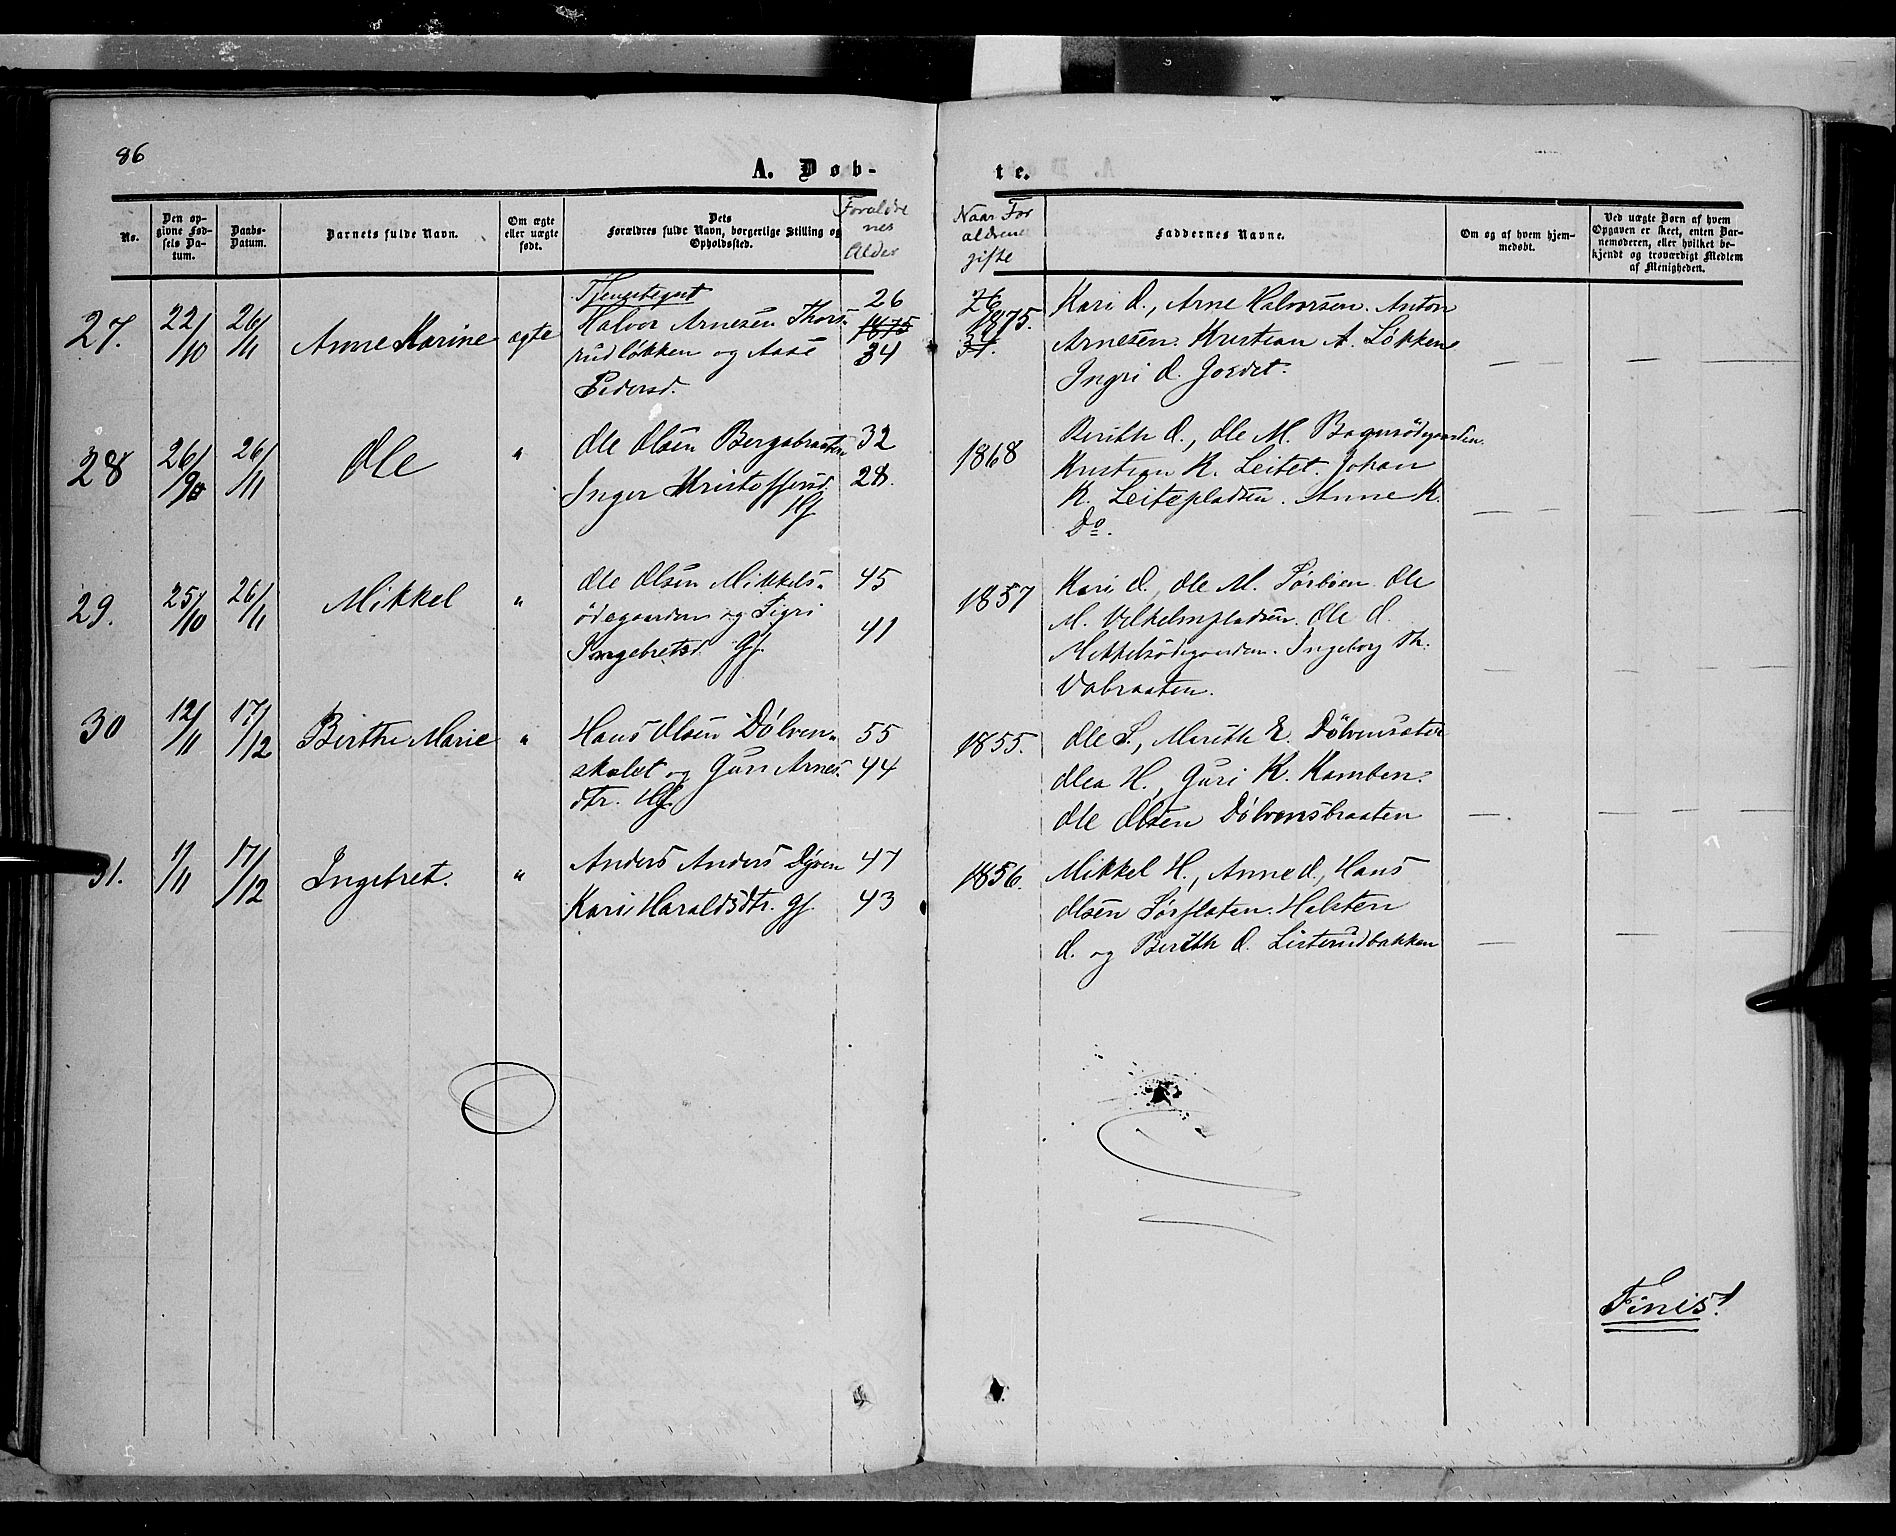 86
A. Døb-
te.
No.
Den op-
givne Fød-
sels Da-
tum.
Daabs-
Datum.
Barnets fulde Navn.
Om ægte
eller uægte
født.
Dets
Forældres fulde Navn, borgerlige Stilling og
Opholdssted.
Foraldre
nes
Alder
Naar For
aldrene
gifte
Faddernes Navne.
Om og af hvem hjem-
medøbt.
Ved uægte Børn af hvem
Opgaven er skeet, enten Bar-
nemoderen, eller hvilket be-
kjendt og troværdigt Medlem
af Menigheden.
27.
22/10
26/11
Anne Karine
ægte
Halvor Arnesen Thors-
rudløkken og Aase
Pedersd.
26
1875
34
26
1875.
34.
Kari O., Arne Halvorsen. Anton
Arnesen. Kristian A. Løkken
Ingri O. Jordet.
28
26/9
26/11
Ole
"
Ole Olsen Bergsbraaten
Inger Kristoffersd.
Hf
32
28.
1868
Berith O., Ole M.
Kristian K. Leitet. Johan
K. Leitepladsen. Anne K.
Do.
29.
25/10
26/11
Mikkel
"
Ole Olsen Mikkels-
ødegaarden og Sigri
Ingebretsd. Gf.
45
41
1857
Kari O., Ole M. Sørbøen. Ole
M. Vilhelmpladsen. Ole O.
Mikkelsødegaarden. Ingeborg Th.
Vabraaten.
30
12/11
17/12
Birthe Marie
"
Hans Olsen Dølven-
skalet og Guri Arnes-
dtr. Hf.
55
44
1855.
Ole S., Marith E. Dølvensæter
Olea H., Guri K. Kamben.
Ole Olsen Dølvensbraaten
31.
1/11
17/12
Ingebret.
"
Anders Anders Døven
Kari Haraldsdtr. Gf.
47
43
1856.
Mikkel H., Anne O., Hans
Olsen Sørflaten. Halsten
O. og Berith O. Listerudbakken
Finis!